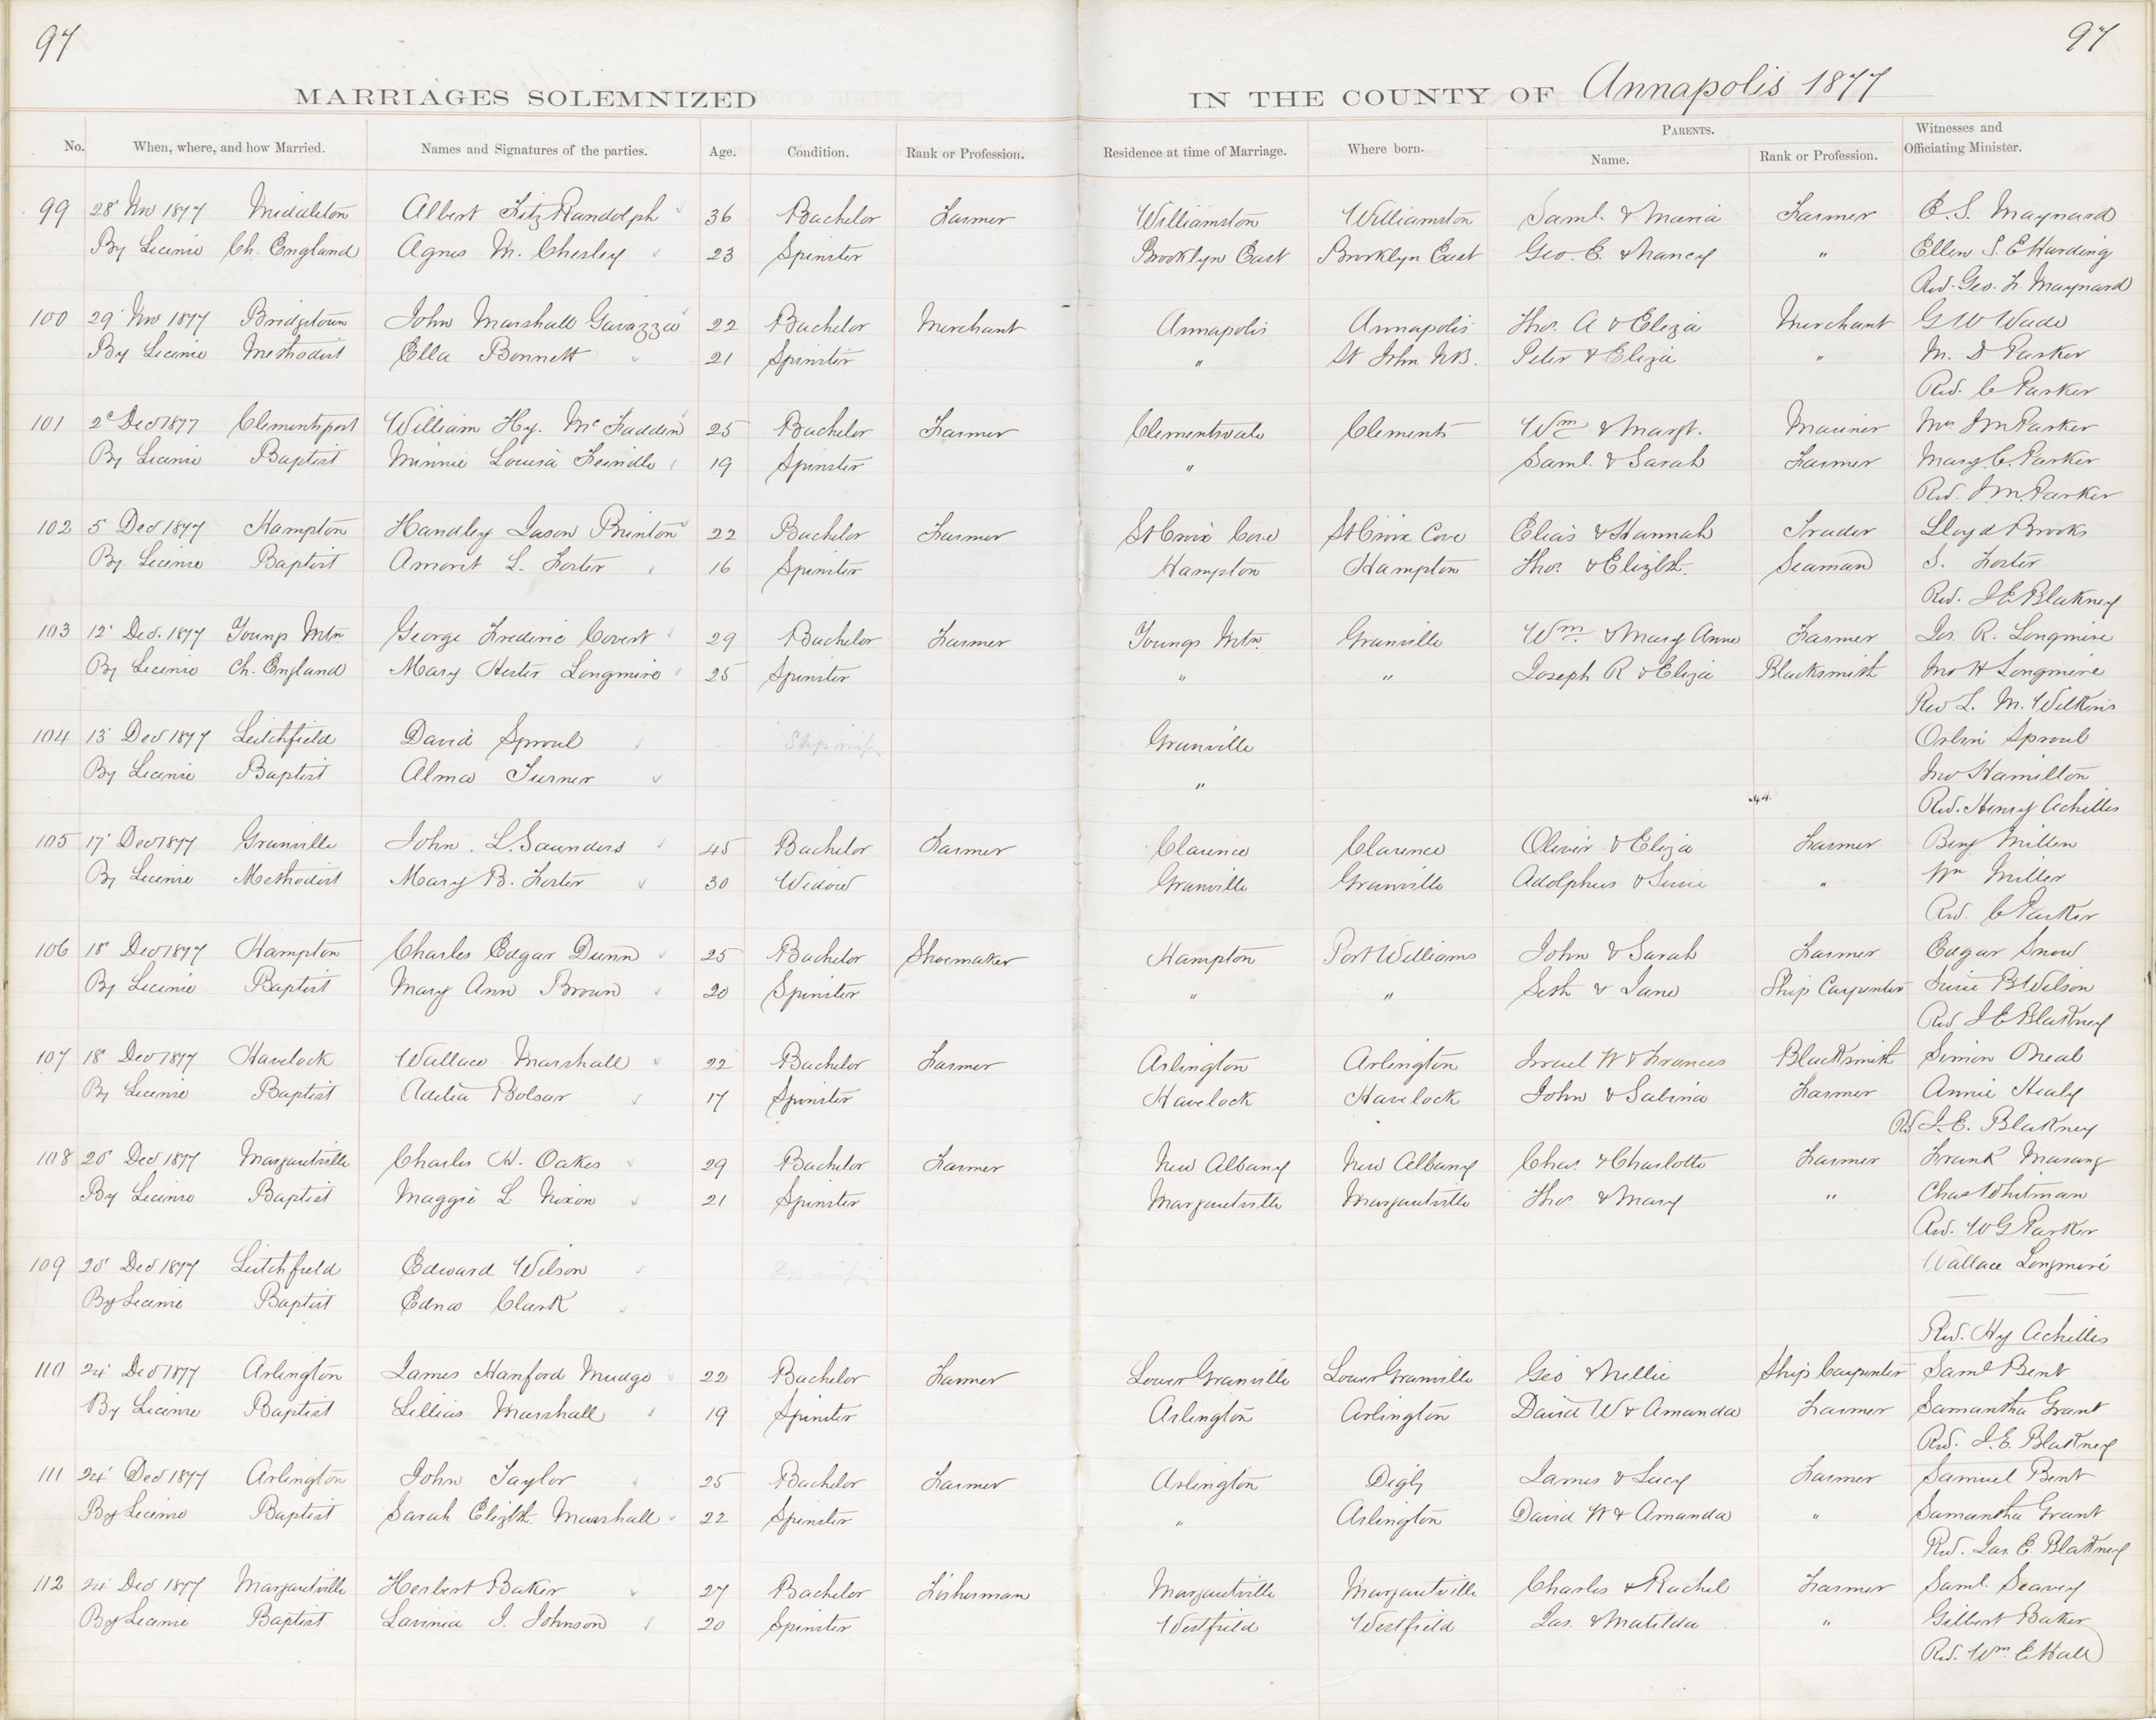 97 97
MARRIAGES SOLEMNIZED IN THE COUNTY OF Annapolis 1877
No. When, where, and how Married. Names and Signatures of the parties. Age. Condition. Rank or Profession. Residence at time of Marriage. Where born. PARENTS. Name. Rank or Profession. Witnesses and Officiating Minister.
99 28' Nov 1877 Middleton Albert Fitz Randolph 36 Bachelor Farmer Williamston Williamston Saml. & Maria Farmer E. S. Maynard
By License Ch. England Agnes M. Chesley 23 Spinster Brooklyn East Brooklyn East Geo. E. & Nancy " Ellen S. E Harding
Rev. Geo. F. Maynard
100 29' Nov 1877 Bridgetown John Marshall Gavazza 22 Bachelor Merchant Annapolis Annapolis Thos. A & Eliza Merchant G W Wade
By License Methodist Ella Bonnett 21 Spinster " St John N.B. Peter & Eliza " M. D Parker
Rev. C Parker
101 2d Dec 1877 Clementsport William Hy. McFadden 25 Bachelor Farmer Clementsvale Clements Wm & Margt. Mariner Mrs J M Parker
By License Baptist Minnie Louisa Feindle 19 Spinster " Saml. & Sarah Farmer Mary C. Parker
Rev. J M. Parker
102 5 Dec 1877 Hampton Handley Jason Brinton 22 Bachelor Farmer St Croix Cove St Croix Cove Elias & Hannah Trader Lloyd Brooks
By License Baptist Amorit L. Foster 16 Spinster Hampton Hampton Thos. & Elizbth. Seaman S. Foster
Rev. J E Blakney
103 12' Dec. 1877 Youngs Mtn. George Frederic Covert 29 Bachelor Farmer Youngs Mtn. Granville Wm. & Mary Anne Farmer Jos. R. Longmire
By License Ch. England Mary Hester Longmire 25 Spinster " " Joseph R & Eliza Blacksmith Jno H Longmire
Rev L. M. Wilkins
104 13' Dec 1877 Leitchfield David Sproul Granville Orlin Sproul
By License Baptist Alma Turner " Jno Hamilton
Rev. Henry Achilles
105 17' Dec 1877 Granville John. L. Saunders 45 Bachelor Farmer Clarence Clarence Oliver & Eliza Farmer Benj Miller
By License Methodist Mary B. Foster 30 Widow Granville Granville Adolphus & Susie " Wm Miller
Rev. C Parker
106 18' Dec 1877 Hampton Charles Edgar Dunn 25 Bachelor Shoemaker Hampton Port Williams John & Sarah Farmer Edgar Snow
By License Baptist Mary Ann Brown 20 Spinster " " Seth & Jane Ship Carpenter Susie B Wilson
Rev J E Blakney
107 18' Dec 1877 Havelock Wallace Marshall 22 Bachelor Farmer Arlington Arlington Israel W & Frances Blacksmith Simon Oneal
By License Baptist Adelia Bolsar 17 Spinster Havelock Havelock John & Sabina Farmer Annie Healy
Rev J. E. Blakney
108 20' Dec 1877 Margaretville Charles W. Oakes 29 Bachelor Farmer New Albany New Albany Chas. & Charlotte Farmer Frank
By License Baptist Maggie L Nixon 21 Spinster Margaretville Margaretville Thos & Mary " Chas Whitman
Rev. W G Parker
109 20' Dec 1877 Leitchfield Edward Wilson Wallace Longmire
By License Baptist Edna Clark
Rev. Hy Achilles
110 24' Dec 1877 Arlington James Hanford Mudge 22 Bachelor Farmer Lower Granville Lower Granville Geo & Nellie Ship Carpenter Saml Bent
By License Baptist Lillias Marshall 19 Spinster Arlington Arlington David W & Amanda Farmer Samantha Grant
Rev. J. E. Blakney
111 24' Dec 1877 Arlington John Taylor 25 Bachelor Farmer Arlington Digby James & Lucy Farmer Samuel Bent
By License Baptist Sarah Elizbth. Marshall 22 Spinster " Arlington David W & Amanda " Samantha Grant
Rev. Jas. E. Blakney
112 24' Dec 1877 Margaretville Herbert Baker 27 Bachelor Fisherman Margaretville Margaretville Charles & Rachel Farmer Saml. Seavey
By License Baptist Lavinia J. Johnson 20 Spinster Westfield Westfield Jas. & Matilda " Gilbert Baker
Rev. Wm. E Hall